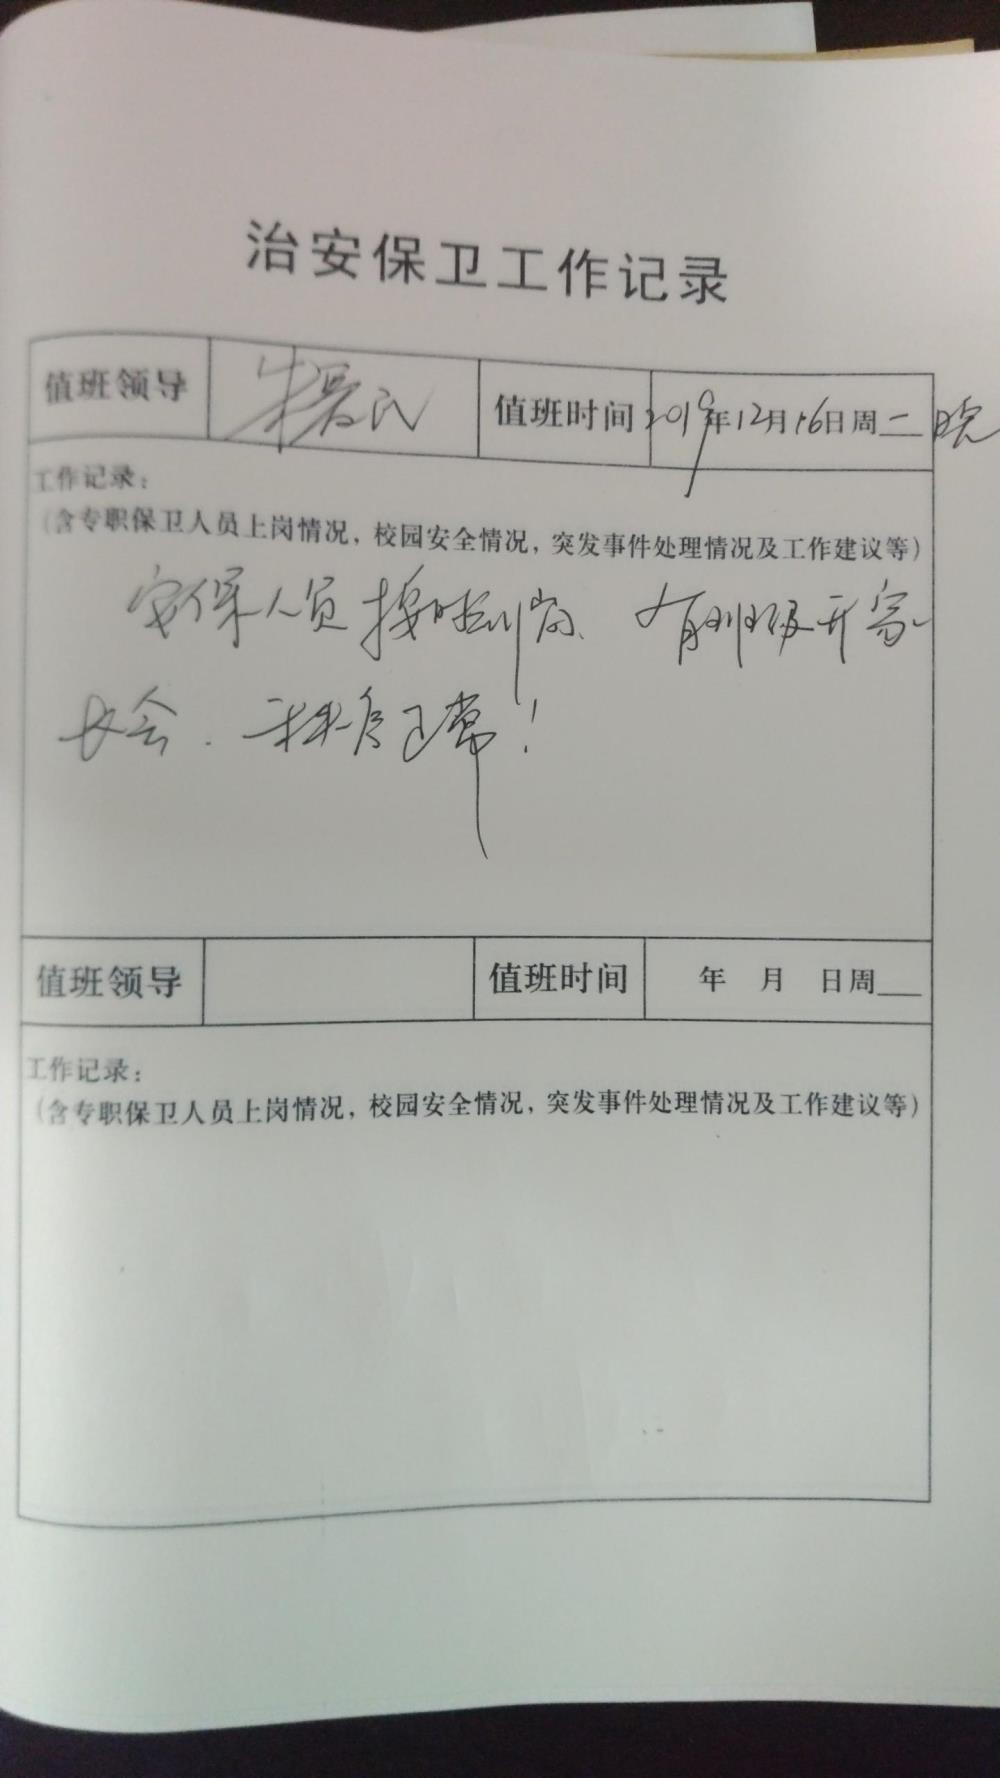 治安保卫工作记录
值班领导 朱 民 值班时间 2019年12月16日周二晚
工作记录：
（含专职保卫人员上岗情况，校园安全情况，突发事件处理情况及工作建议等）
安保人员按时到岗、有班级开家
长会．一切正常！
值班领导 值班时间 年 月 日周__
工作记录：
（含专职保卫人员上岗情况，校园安全情况，突发事件处理情况及工作建议等）